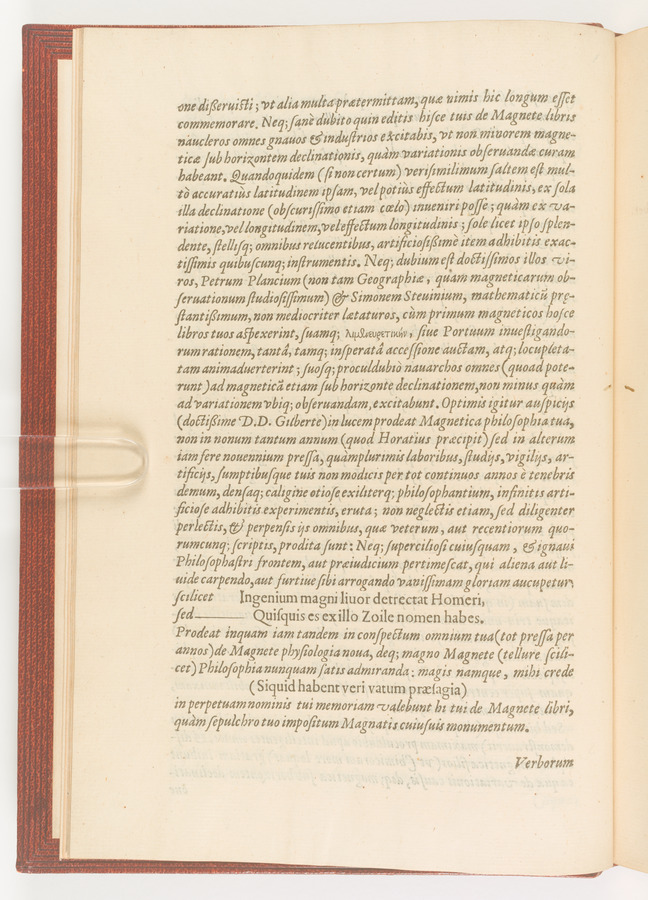 one dißeruisti; vt alia multa prætermittam, quæ nimis hic longum esset
commemorare. Neq; sanè dubito quin editis hisce tuis de Magnete libris
naucleros omnes gnauos & industrios excitabis, vt non minorem magne-
ticæ sub horizontem declinationis, quàm variationis obseruandæ curam
habeant. Quandoquidem (si non certum) verisimilimum saltem est mul-
tò accuratiùs latitudinem ipsam, vel potiùs effectum latitudinis, ex sola
illa declinatione (obscurissimo etiam cœlo) inueniri posse; quàm ex va-
riatione, vel longitudinem, vel effectum longitudinis; sole licet ipso splen-
dente, stellisq; omnibus relucentibus, artificiosißimè item adhibitis exac-
tissimis quibuscunq; instrumentis. Neq; dubium est doctissimos illos vi-
ros, Petrum Plancium (non tam Geographiæ, quàm magneticarum ob-
seruationum studiosissimum) & Simonem Steuinium, mathematicũ præ-
stantißimum, non mediocriter lætaturos, cùm primum magneticos hosce
libros tuos aspexerint, suamq; λιμενευρετικὴν, siue Portuum inuestigando-
rum rationem, tantâ, tamq; insperatâ accessione auctam, atq; locupleta-
tam animaduerterint; suosq; proculdubiò nauarchos omnes (quoad pote-
runt) ad magneticã etiam sub horizonte declinationem, non minus quàm
ad variationem vbiq; obseruandam, excitabunt. Optimis igitur auspicijs
(doctißime D.D. Gilberte) in lucem prodeat Magnetica philosophia tua,
non in nonum tantum annum (quod Horatius præcipit) sed in alterum
iam fere nouennium pressa, quàmplurimis laboribus, studijs, vigilijs, ar-
tificijs, sumptibusque tuis non modicis per tot continuos annos è tenebris
demum, densaq; caligine otiose exiliterq; philosophantium, infinitis arti-
ficiose adhibitis experimentis, eruta; non neglectis etiam, sed diligenter
perlectis, & perpensis ijs omnibus, quæ veterum, aut recentiorum quo-
rumcunq; scriptis, prodita sunt: Neq; superciliosi cuiusquam, & ignaui
Philosophastri frontem, aut præiudicium pertimescat, qui aliena aut li-
uide carpendo, aut furtiue sibi arrogando vanissimam gloriam aucupetur;
scilicet Ingenium magni liuor detrectat Homeri,
sed—— Quisquis es ex illo Zoile nomen habes.
Prodeat inquam iam tandem in conspectum omnium tua (tot pressa per
annos) de Magnete physiologia noua, deq; magno Magnete (tellure scili-
cet) Philosophia nunquam satis admiranda: magis namque, mihi crede
(Siquid habent veri vatum præsagia)
in perpetuam nominis tui memoriam valebunt hi tui de Magnete libri,
quàm sepulchro tuo impositum Magnatis cuiusuis monumentum.
Verborum